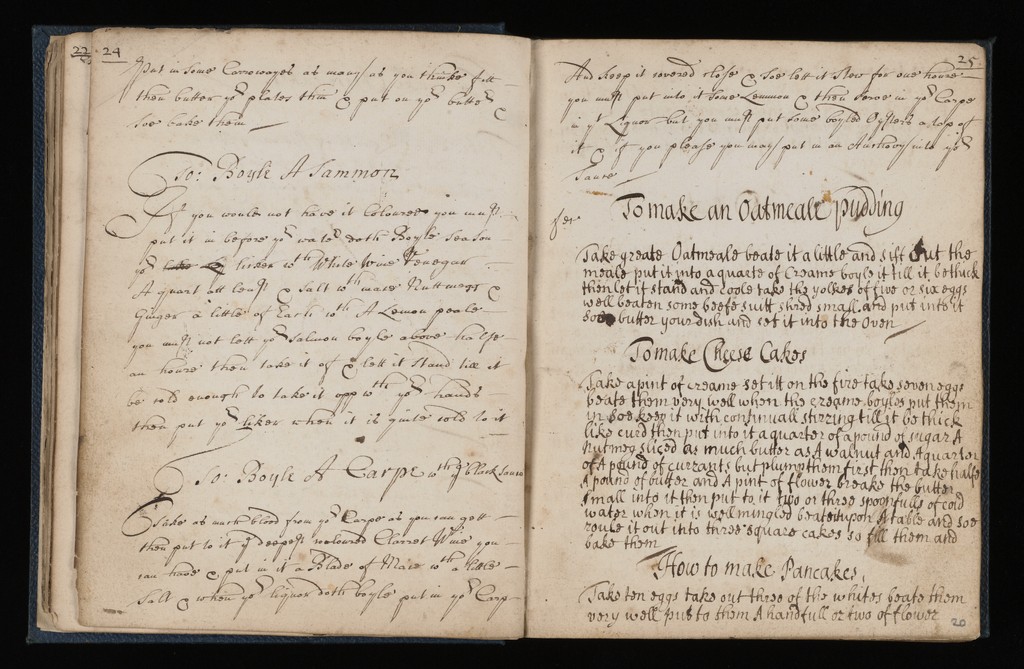 22
24
Put in some Carrowayes as many as you thinke fitt
then butter yor plates thin & put on yor butter &
soe bake them
To: Boyle A Sammon
If you would not have it Coloured you must
put it in before yor water doth Boyle season
yor licker wth White Wine Venegar
A quart att least & salt wth mace Nuttmegs &
Ginger a little of Each wth A Lemon peale
you must not lett yor Salmon boyle above halfe
an houre then take it of & lett it stand till it
be cold enough to take it opp wth yor hands
then put yor liker when it is quite cold to it
To: Boyle A Carpe wth ye black Sauce
Take as much blood from yor Carpe as you can gett
then put to it ye deepest coloured Clarret Wine you
can have & put in it a Blade of Mace wth a little
salt & when yor liquor doth boyle put in yor Carp
25
And keep it covered close & soe lett it stew for one houre
you must put into it some Lemmon & then serve in yor Carpe
in yt Liquor but you must put some boyled Oysters a top of
it & if you please you may put in an Anchovy into yor
sauce
To make an Oatmeale pudding
Take greate Oatmeale beate it a little and sift out the
meale put it into a quarte of Creame boyle it till it be thick
then let it stand and coole take the yolkes of five or six eggs
well beaten some beefe sutt shred small and put into it
soe butter your dish and set it into the Oven
To make Cheese Cakes
Take a pint of creame set itt on the fire take seven eggs
beate them very well when the creame boyles put them
in soe keep it with continuall stirring till it be thick
like curd then put into it a quarter of a pound of sugar A
nutmeg sliced as much butter as A walnut and A quarter
of A pound of currants but plump them first then take halfe
A pound of butter and A pint of flower breake the butter
small into it then put to it two or three spoonfulls of cold
water when it is well mingled beate it upon A table and soe
roule it out into three square cakes so fill them and
bake them
How to make Pancakes
Take ten eggs take out three of the whites beate them
very well put to them A handfull or two of flower
20